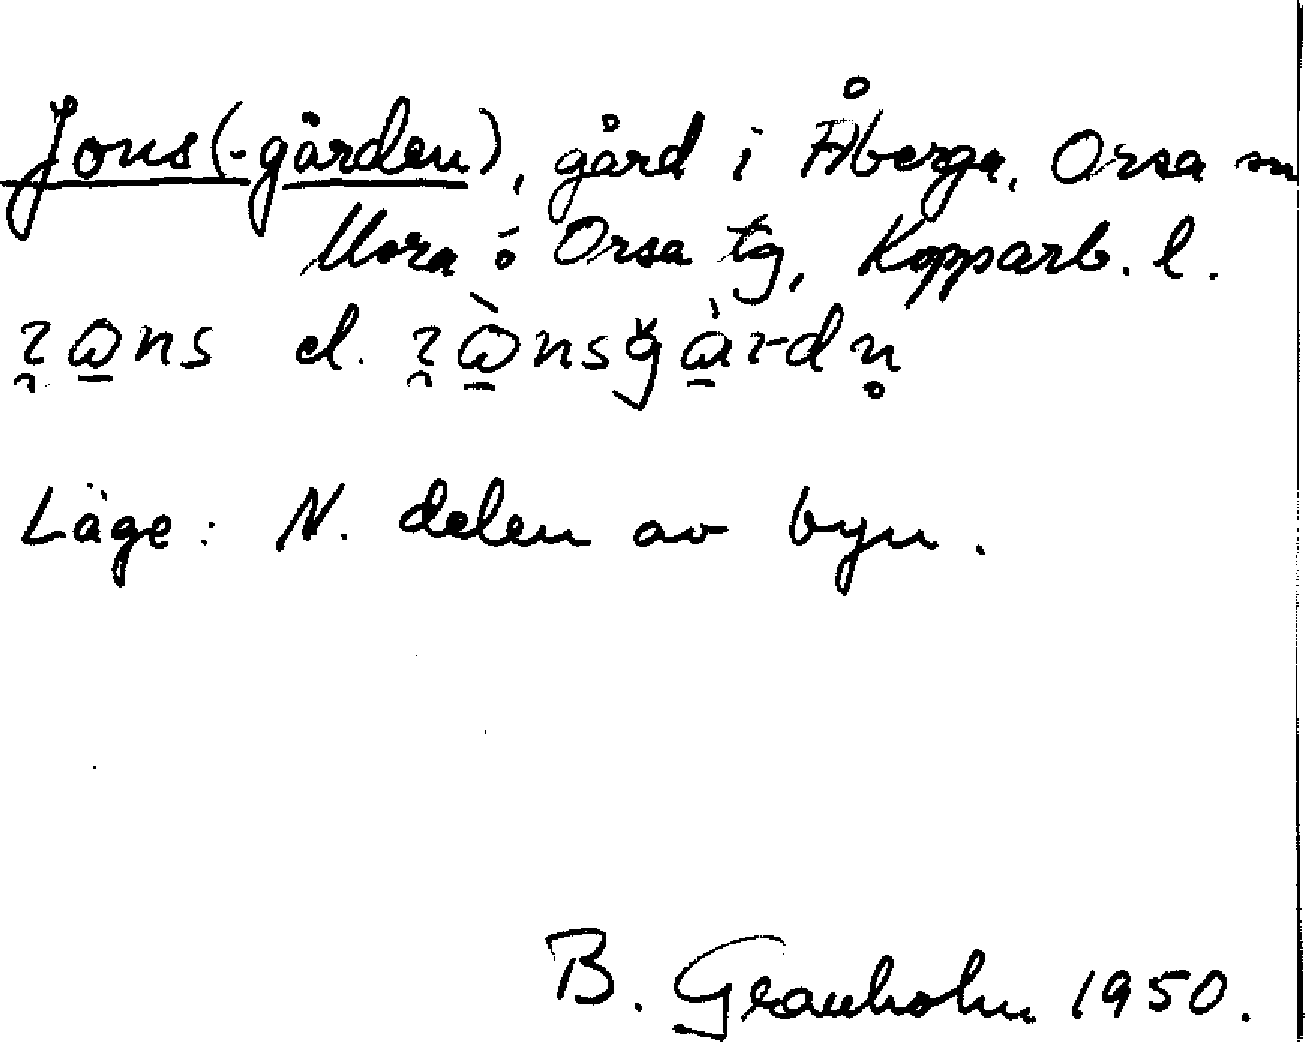 Jons(-gården), gård i Åberga, Orsa sn
Mora o Orsa tg, Kopparb. l.
el.
Läge: N. delen av byn.
B. Granholm 1950.